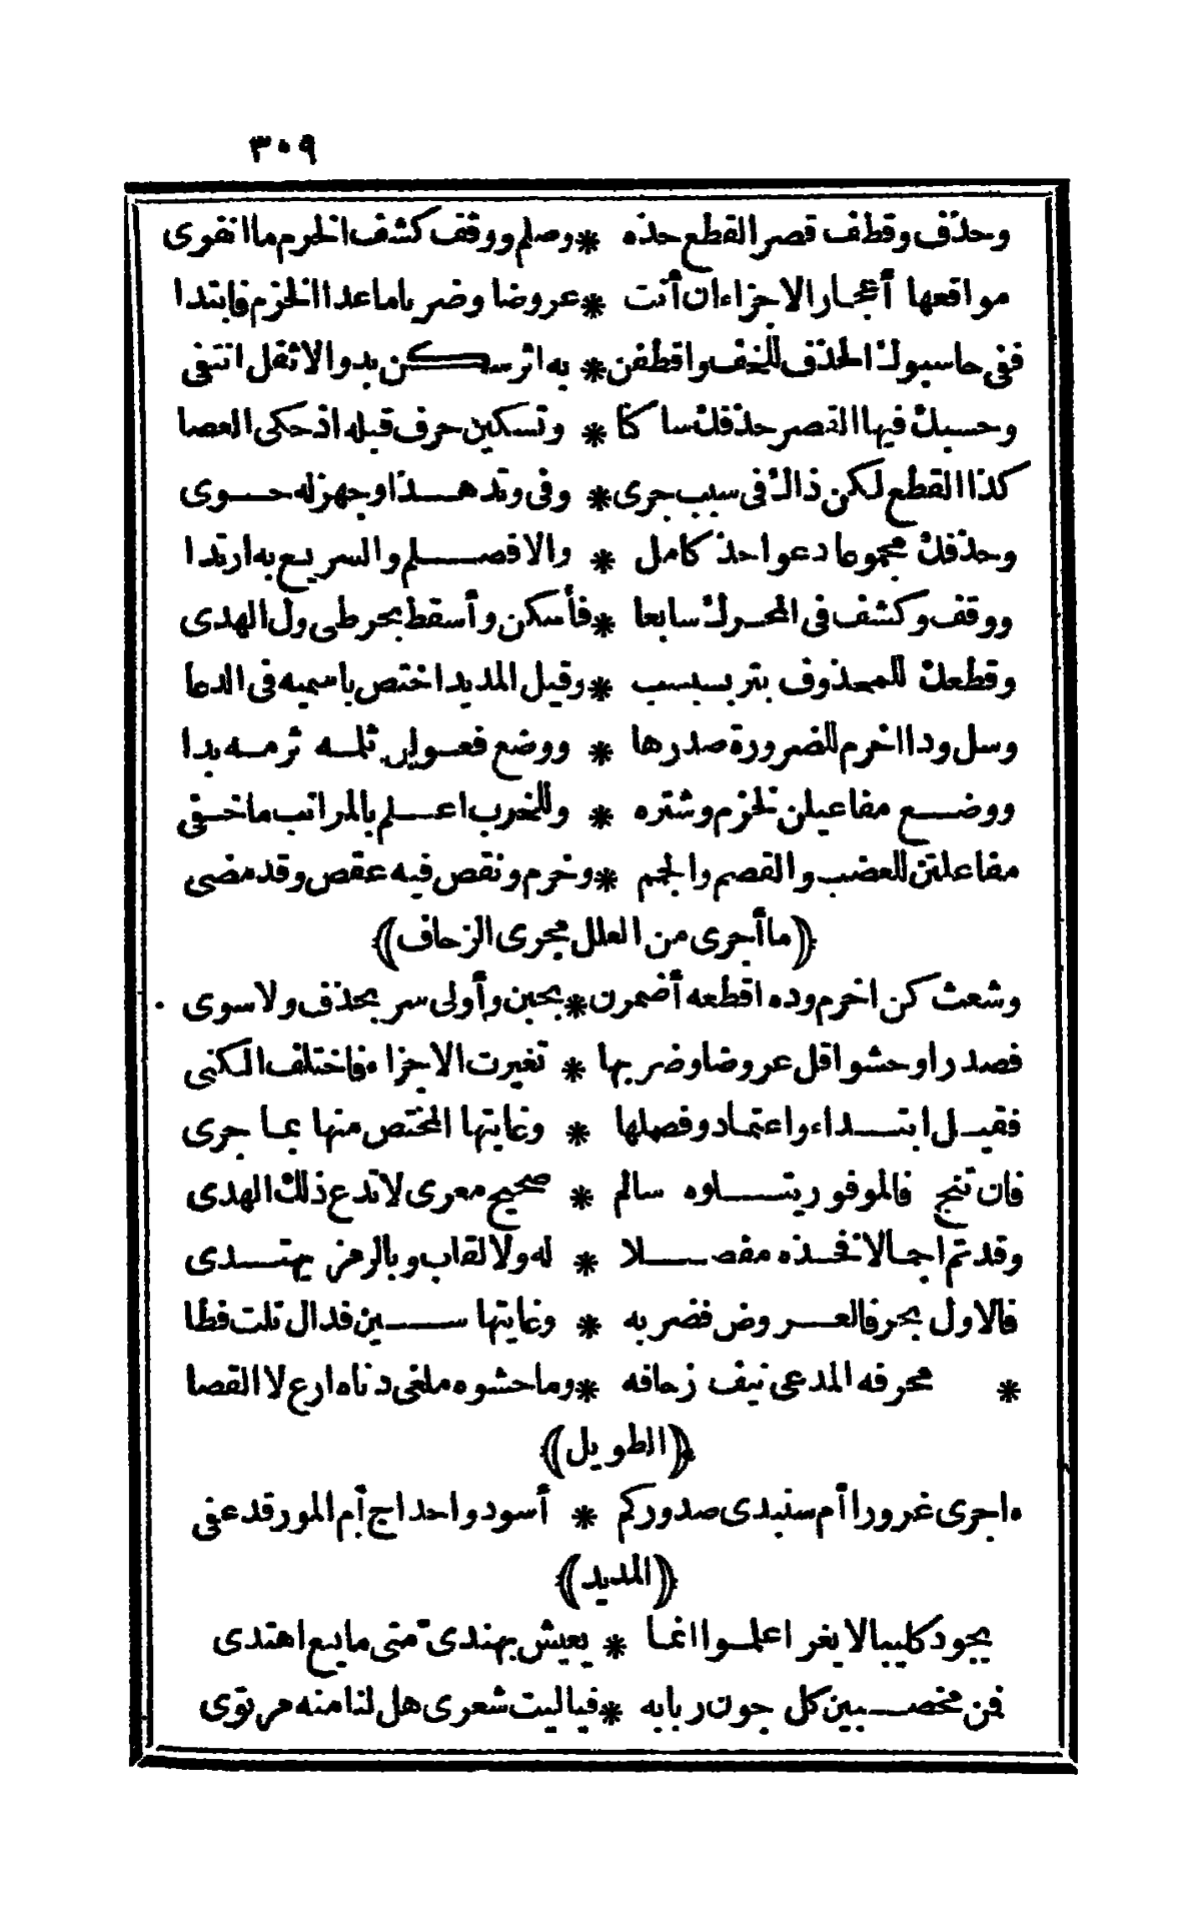 ٣٠٩
وحذف وقطف قصر القطع حذه * وصلم ووقف كشف الخرم ما انفرى
مواقعها أعجاز الاجزاء ان أتت * عروضا وضربا ماعدا الخزم فابتدا
ففى حاسبوك الحذف للخف واقطفن * به اثر سكن بدوالا ثقل انتفى
وحسبك فيها القصر حذفك ساكنا * وتسكين حرف قبله اذ حكى العصا
كذا القطع لكن ذاك فى سبب جرى * وفى وتد هذا وجهز له حوى
وحذفك مجموعا دعوا حذ كامل * والا فصلم والسريع به ارتدا
ووقف وكشف فى المحرك سابعا * فأسكن وأسقط بحر طى ول الهدى
وقطعك للمحذوف بتر بسبسب * وقيل المديد اختص باسميه فى الدعا
وسل ودا اخرم للضرورة صدرها * ووضع فعولن ثلمه ثرمه بدا
ووضع مفاعيلن لخرم وشتره * وللخرب اعلم بالمراتب ماخفى
مفاعلتن للعضب والقصم والجم * وخرم ونقص فيه عقص وقد مضى
﴿(ما أجرى من العلل مجرى الزحاف)﴾
وشعث كن اخرم وده اقطعه أضمرن * بخبن وأولى سر بحذف ولا سوى
فصدرا وحشوا قل عروضا وضربها * تغيرت الاجزاء فاختلف الكنى
فقيل ابتداء واعتماد وفصلها * وغايتها المختص منها بما جرى
فان تنج فالموفور يتلوه سالم * صحيح معرى لا تدع ذلك الهدى
وقد تم اجمالا نخذه مفصلا * له ولالقاب وبالرمز يهتدى
فالاول بحر فالعروض فضربه * وغايتها سين فدال تلت فطا
* محرفه المدعى نيف زحافه * وما حشوه ملغى دناه ارع لا القصا
﴿(الطويل)﴾
ءاجرى غرورا أم ستبدى صدوركم * أسود واحداج أم المور قد عفى
﴿(المديد)﴾
بجود كليبالا يغر اعلموا انما * يعيش بهندى متى مايبع اهتدى
فمن مخصبين كل جون ربابه * فياليت شعرى هل لنا منه مرتوى